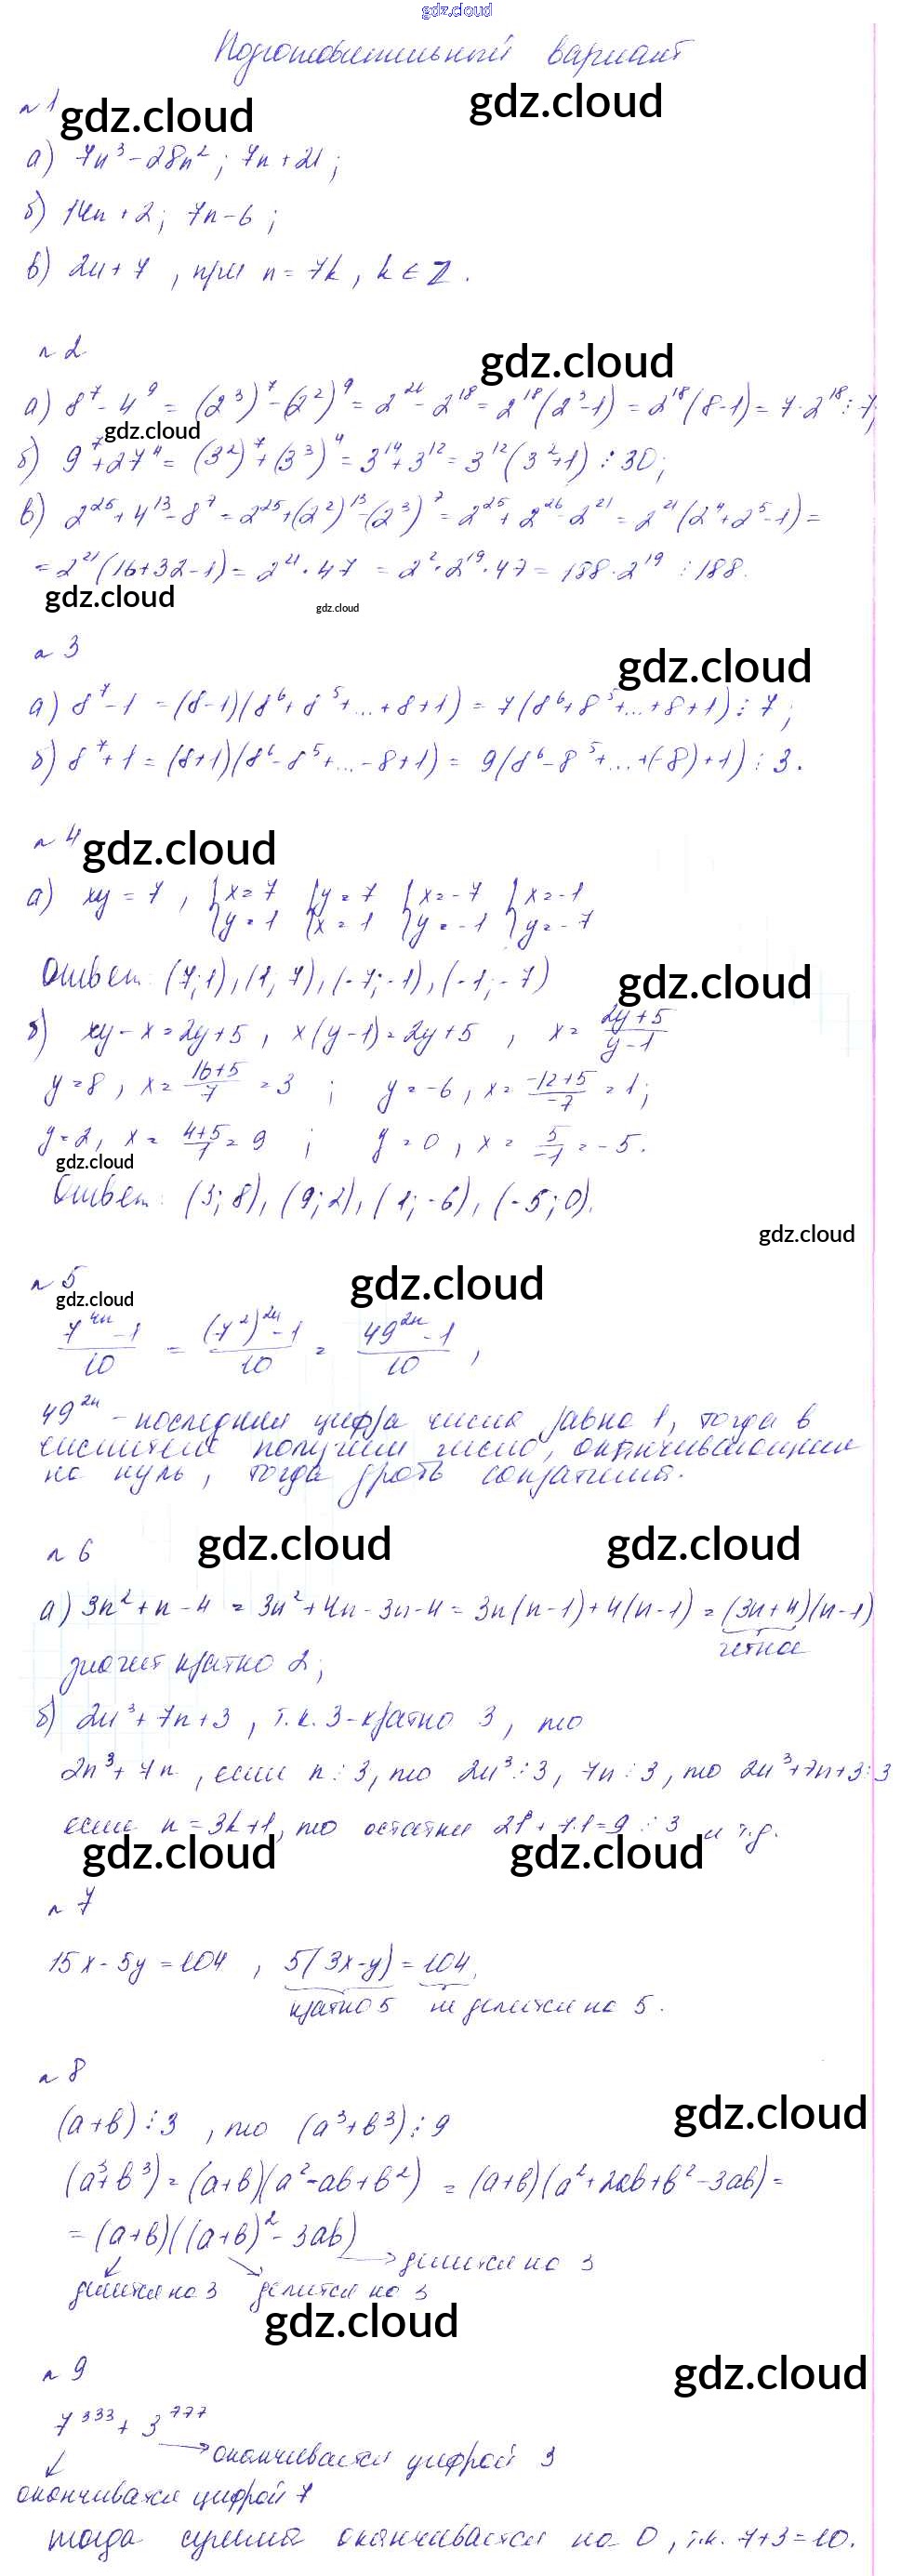 gdz.cloud
Подготовительный вариант
№1 gdz.cloud gdz.cloud
а) 7n³ - 28n² ; 7n + 21 ;
б) 14n + 2 ; 7n - 6 ;
в) 2n + 7 , при n = 7k , k ∈ Z .
№2 gdz.cloud
а) 8⁷ - 4⁹ = (2³)⁷ - (2²)⁹ = 2²¹ - 2¹⁸ = 2¹⁸(2³-1) = 2¹⁸(8-1) = 7·2¹⁸ ⋮ 7;
gdz.cloud
б) 9⁷ + 27⁴ = (3²)⁷ + (3³)⁴ = 3¹⁴ + 3¹² = 3¹²(3²+1) ⋮ 30;
в) 2²⁵ + 4¹³ - 8⁷ = 2²⁵ + (2²)¹³ - (2³)⁷ = 2²⁵ + 2²⁶ - 2²¹ = 2²¹(2⁴ + 2⁵ - 1) =
= 2²¹(16+32-1) = 2²¹ · 47 = 2² · 2¹⁹ · 47 = 188 · 2¹⁹ ⋮ 188.
gdz.cloud gdz.cloud
№3 gdz.cloud
а) 8⁷ - 1 = (8-1)(8⁶ + 8⁵ + ... + 8 + 1) = 7(8⁶ + 8⁵ + ... + 8 + 1) ⋮ 7 ;
б) 8⁷ + 1 = (8+1)(8⁶ - 8⁵ + ... - 8 + 1) = 9(8⁶ - 8⁵ + ... + (-8) + 1) ⋮ 3 .
№4 gdz.cloud
а) xy = 7 , { x = 7 { y = 7 { x = -7 { x = -1
y = 1 x = 1 y = -1 y = -7
Ответ: (7;1), (1;7), (-7;-1), (-1;-7)
gdz.cloud
б) xy - x = 2y + 5 , x(y-1) = 2y + 5 , x = (2y+5)/(y-1)
y = 8 , x = (16+5)/7 = 3 ; y = -6 , x = (-12+5)/-7 = 1;
y = 2 , x = (4+5)/1 = 9 ; y = 0 , x = 5/-1 = -5.
gdz.cloud
Ответ: (3;8), (9;2), (1;-6), (-5;0).
gdz.cloud
№5 gdz.cloud
gdz.cloud
(7⁴ⁿ - 1)/10 = ((7²)²ⁿ - 1)/10 = (49²ⁿ - 1)/10 ,
49²ⁿ - последняя цифра числа равна 1, тогда в
числителе получим число, оканчивающееся
на нуль, тогда дробь сократима.
№6 gdz.cloud gdz.cloud
а) 3n² + n - 4 = 3n² + 4n - 3n - 4 = 3n(n-1) + 4(n-1) = (3n+4)(n-1)
четное
значит кратно 2;
б) 2n³ + 7n + 3 , т.к. 3 - кратно 3 , то
2n³ + 7n , если n ⋮ 3, то 2n³ ⋮ 3, 7n ⋮ 3 , то 2n³+7n+3 ⋮ 3
если n = 3k+1, то остатки 2·1³ + 7·1 = 9 ⋮ 3 и т.д.
gdz.cloud gdz.cloud
№7
15x - 5y = 104 , 5(3x-y) = 104,
кратно 5 не делится на 5 .
№8
gdz.cloud
(a+b) ⋮ 3 , то (a³+b³) ⋮ 9
(a³+b³) = (a+b)(a²-ab+b²) = (a+b)(a²+2ab+b²-3ab) =
= (a+b)((a+b)² - 3ab)
делится на 3
делится на 3 делится на 3
gdz.cloud
№9 gdz.cloud
7³³³ + 3⁷⁷⁷
оканчивается цифрой 3
оканчивается цифрой 7
тогда сумма оканчивается на 0 , т.к. 7+3=10.